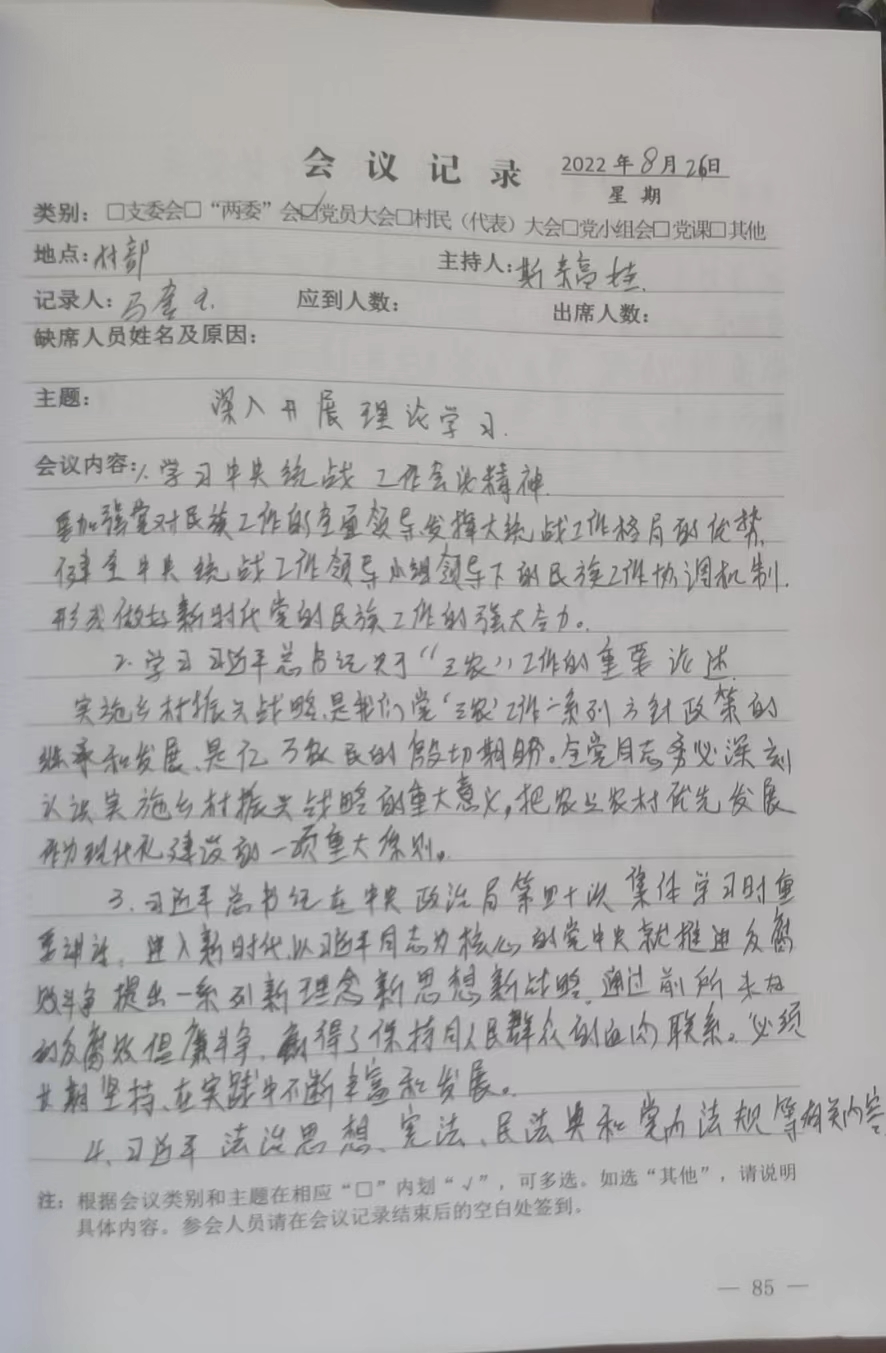 会议记录 2022年8月26日
星期
类别：□支委会□“两委”会☑党员大会□村民（代表）大会□党小组会□党课□其他
地点：村部 主持人：斯
记录人：马 应到人数： 出席人数：
缺席人员姓名及原因：
主题： 深入开展理论学习.
会议内容：1.学习中央统战工作会议精神.
要加强党对民族工作的全面领导,发挥大统战工作格局的优势,
健全中央统战工作领导小组领导下的民族工作协调机制.
形成做好新时代党的民族工作的强大合力。
2.学习习近平总书记关于“三农”工作的重要论述.
实施乡村振兴战略,是我们党“三农”工作一系列方针政策的
继承和发展,是亿万农民的殷切期盼。全党同志务必深刻
认识实施乡村振兴战略的重大意义,把农业农村优先发展
作为现代化建设的一项重大原则。
3.习近平总书记在中央政治局第四十次集体学习时重
要讲话,进入新时代,以习近平同志为核心的党中央就推进反腐
败斗争提出一系列新理念新思想新战略,通过前所未有
的反腐败倡廉斗争,赢得了保持同人民群众的血肉联系。必须
长期坚持、在实践中不断丰富和发展。
4.习近平法治思想、宪法、民法典和党内法规等相关内容
注：根据会议类别和主题在相应“□”内划“√”，可多选。如选“其他”，请说明
具体内容。参会人员请在会议记录结束后的空白处签到。
— 85 —